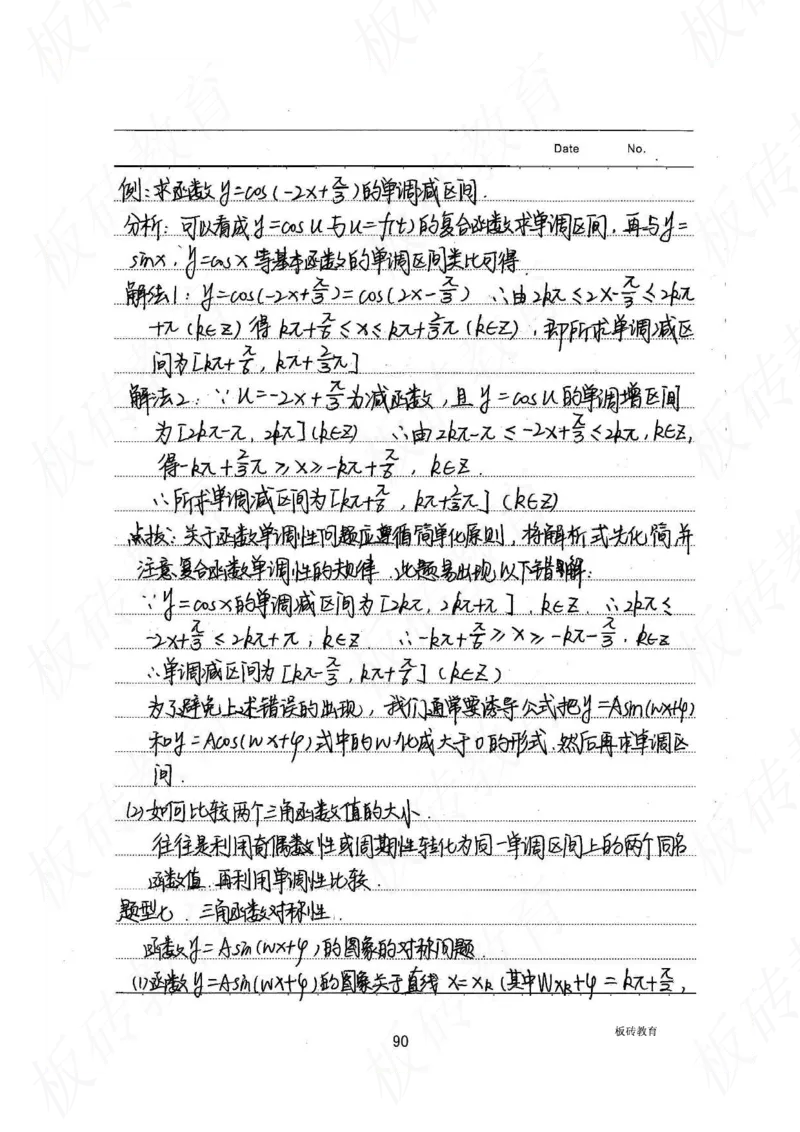 Date No.
例:求函数y=cos(-2x+π/3)的单调减区间.
分析:可以看成y=cosu与u=f(t)的复合函数求单调区间,再与y=
sinx,y=cosx等基本函数的单调区间类比可得.
解法1:y=cos(-2x+π/3)=cos(2x-π/3) ∴由2kπ≤2x-π/3≤2kπ
+π(k∈Z)得kπ+π/6≤x≤kπ+2/3π(k∈Z),即所求单调减区
间为[kπ+π/6,kπ+2/3π]
解法2:∵u=-2x+π/3为减函数,且y=cosu的单调增区间
为[2kπ-π,2kπ](k∈Z) ∴由2kπ-π≤-2x+π/3≤2kπ,k∈Z,
得-kπ+2/3π≥x≥-kπ+π/6,k∈Z.
∴所求单调减区间为[kπ+π/6,kπ+2/3π](k∈Z)
点拨:关于函数单调性问题应遵循简单化原则,将解析式先化简,并
注意复合函数单调性的规律.此题易出现以下错解:
∵y=cosx的单调减区间为[2kπ,2kπ+π],k∈Z.∴2kπ≤
-2x+π/3≤2kπ+π,k∈Z ∴-kπ+π/6≥x≥-kπ-π/3.k∈Z
∴单调减区间为[kπ-π/3,kπ+π/6](k∈Z)
为了避免上述错误的出现,我们通常要诱导公式把y=Asin(wx+φ)
和y=Acos(wx+φ)式中的w化成大于0的形式.然后再求单调区
间.
(2)如何比较两个三角函数值的大小.
往往是利用奇偶数性或周期性转化为同一单调区间上的两个同名
函数值.再利用单调性比较.
题型七.三角函数对称性.
函数y=Asin(wx+φ)的图象的对称问题.
(1)函数y=Asin(wx+φ)的图象关于直线x=xₖ(其中wxₖ+φ=kπ+π/2,
板砖教育
90